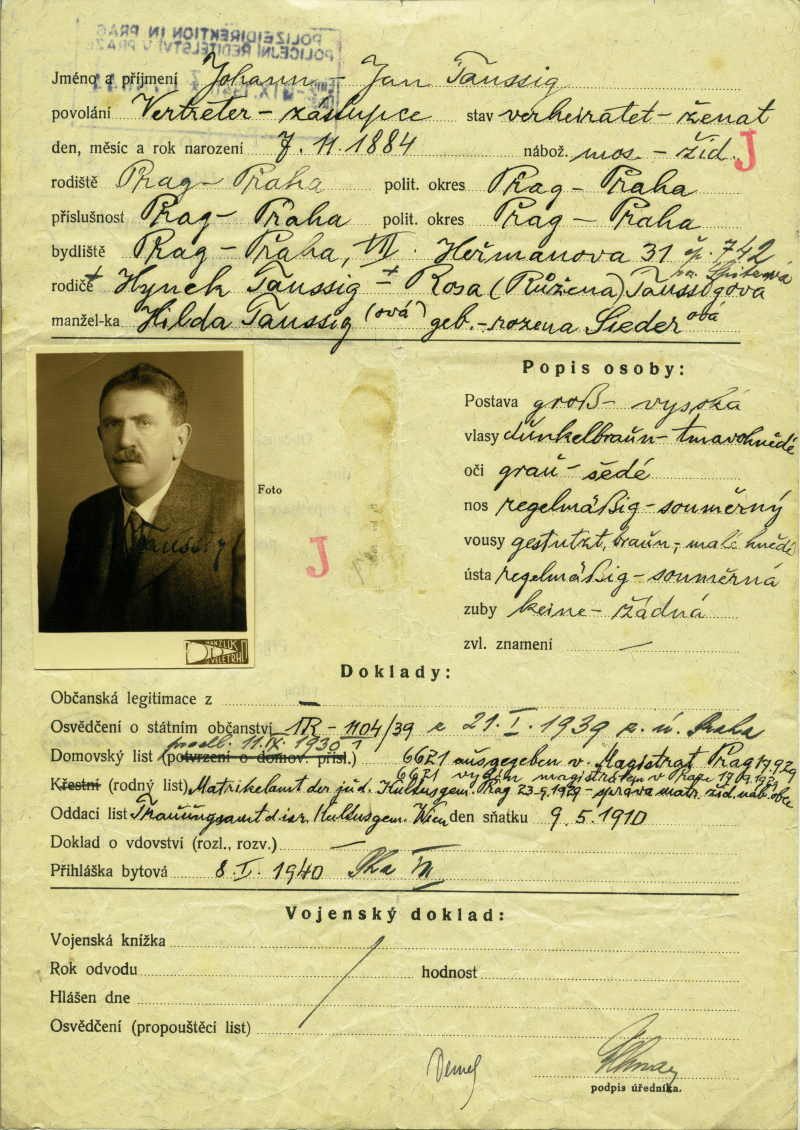 POLIZEIDIREKTION IN PRAG
POLICEJNÍ ŘEDITELSTVÍ V PRAZE
Jméno a příjmení Johann – Jan Taussig
povolání Vertreter – zástupce stav verheiratet – ženat
den, měsíc a rok narození 7. 11. 1884 nábož. mos. – žid. J
rodiště Prag – Praha polit. okres Prag – Praha
příslušnost Prag – Praha polit. okres Prag – Praha
bydliště Prag – Praha, VII. Heřmanova 31 čp. 742
rodiče + Hynek Taussig – + Rosa (Růžena) Taussigová
manžel-ka Hilda Taussig (ová) geb. – rozena Sieder ová
Popis osoby:
Postava groß – vysoká
vlasy dunkelbraun – tmavohnědé
oči grau – šedé
nos regelmäßig – souměrný
vousy gestutzt, braun, – malé hnědé
ústa regelmäßig – souměrná
zuby keine – žádná
zvl. znamení —
Foto
Taussig
J
Doklady:
Občanská legitimace z —
Osvědčení o státním občanství IR – 1104/39 z 21. I. 1939 z. ú. Praha
11. IX. 1930
Domovský list (potvrzení o domov. přísl.) 6621 ausgegeben v. Magistrat Prag 1929
6621 vydán magistrátem v Praze 1929
Křestní (rodný list) Matrikelamt der jüd. Kultusgem. Prag 23-9-1929 – správa matr. žid. náb. obce
Oddací list Trauungsamt d. isr. Kultusgem. Wien den sňatku 9. 5. 1910
Doklad o vdovství (rozl., rozv.) —
Přihláška bytová 8. I. 1940 Pha VII
Vojenský doklad:
Vojenská knížka
Rok odvodu hodnost
Hlášen dne
Osvědčení (propouštěcí list)
podpis úředníka.